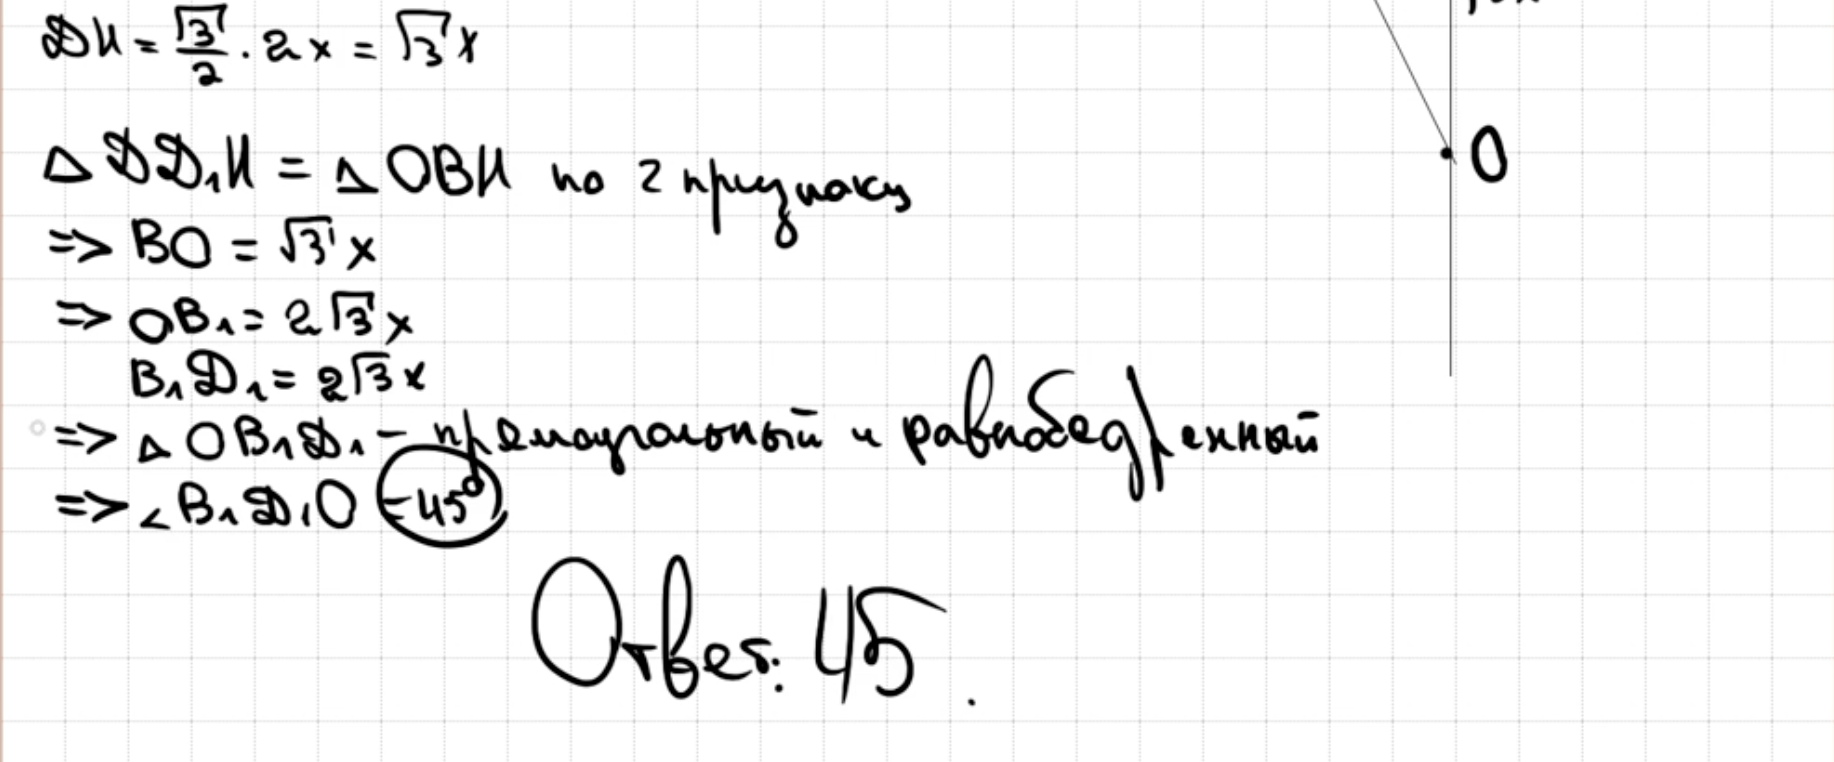 ДН = √3/2 · 2x = √3x
△ DD₁H = △ OBH по 2 признаку
=> BO = √3x
=> OB₁ = 2√3x
B₁D₁ = 2√3x
=> △ OB₁D₁ - прямоугольный и равнобедренный
=> ∠B₁D₁O = 45°
Ответ: 45.
O